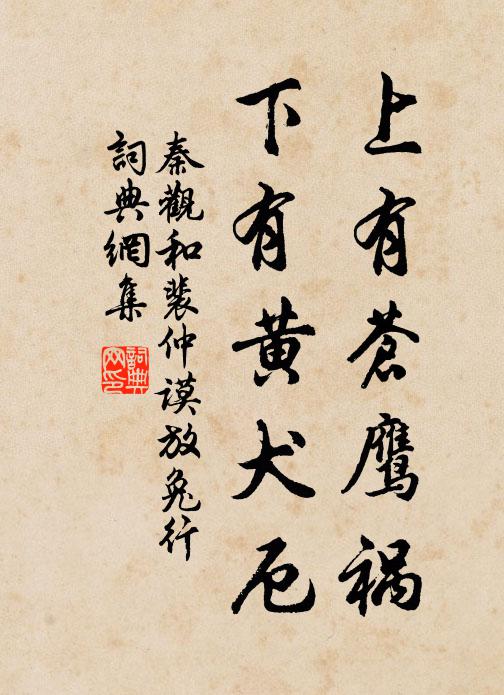 上有苍鹰祸
下有黄犬厄
秦觀和裴仲謨放兔行
詞典網集
詞典网印